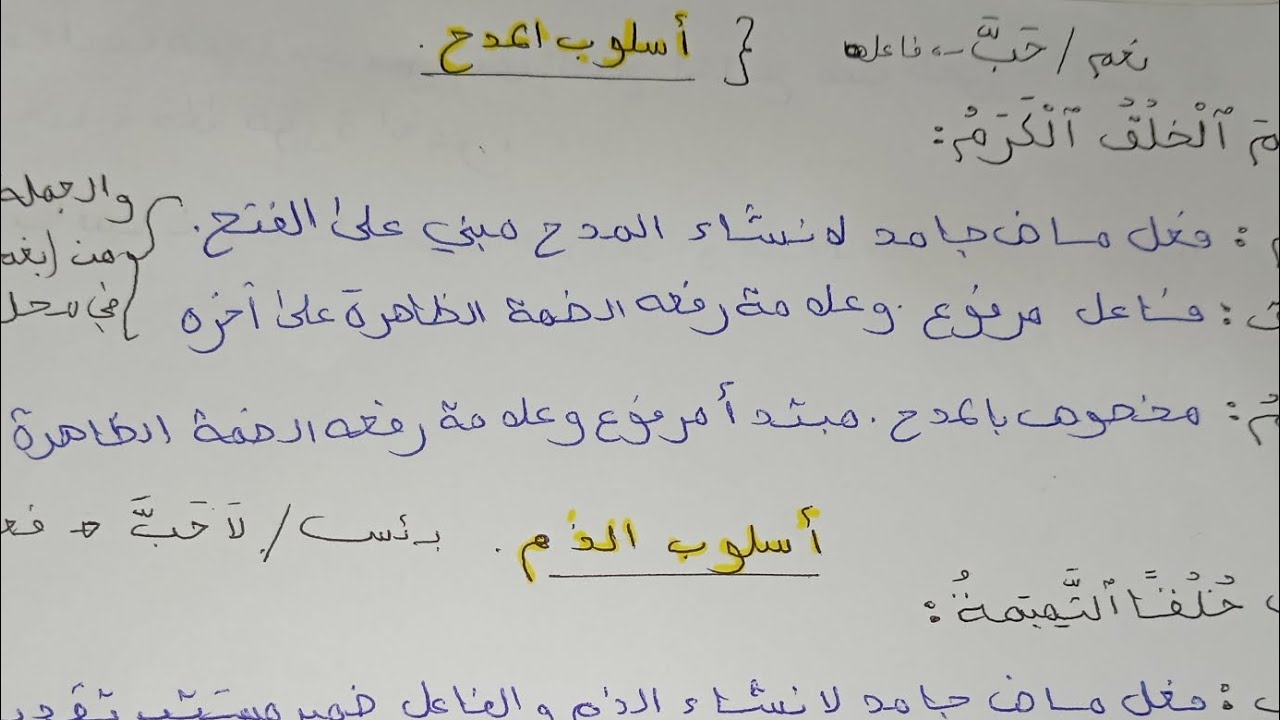 أسلوب المدح. { نعم / حَبَّ → فاعلها
مَ ٱلْخُلُقُ ٱلْكَرَمُ:
: فعل ماض جامد لانشاء المدح مبني على الفتح.
والجملة
من
في محل
: فاعل مرفوع. وعلامة رفعه الضمة الظاهرة على آخره
مُ: مخصوص بالمدح. مبتدأ مرفوع وعلامة رفعه الضمة الظاهرة
أسلوب الذم. بئس / لَا حَبَّ
خُلُقًا ٱلنَّمِيمَةُ:
: فعل ماض جامد لانشاء الذم والفاعل ضمير مستتر تقدير